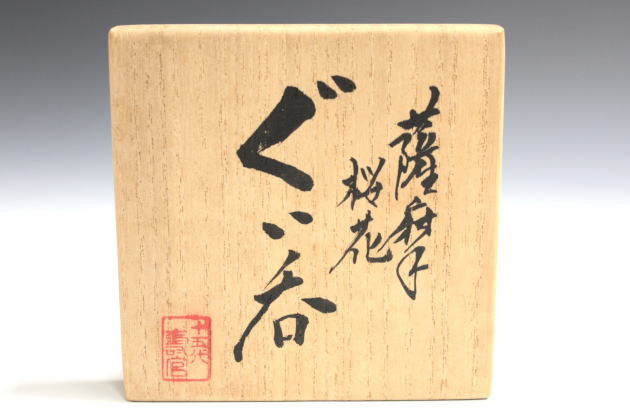 薩摩
桜花
ぐい呑
十五代
壽官